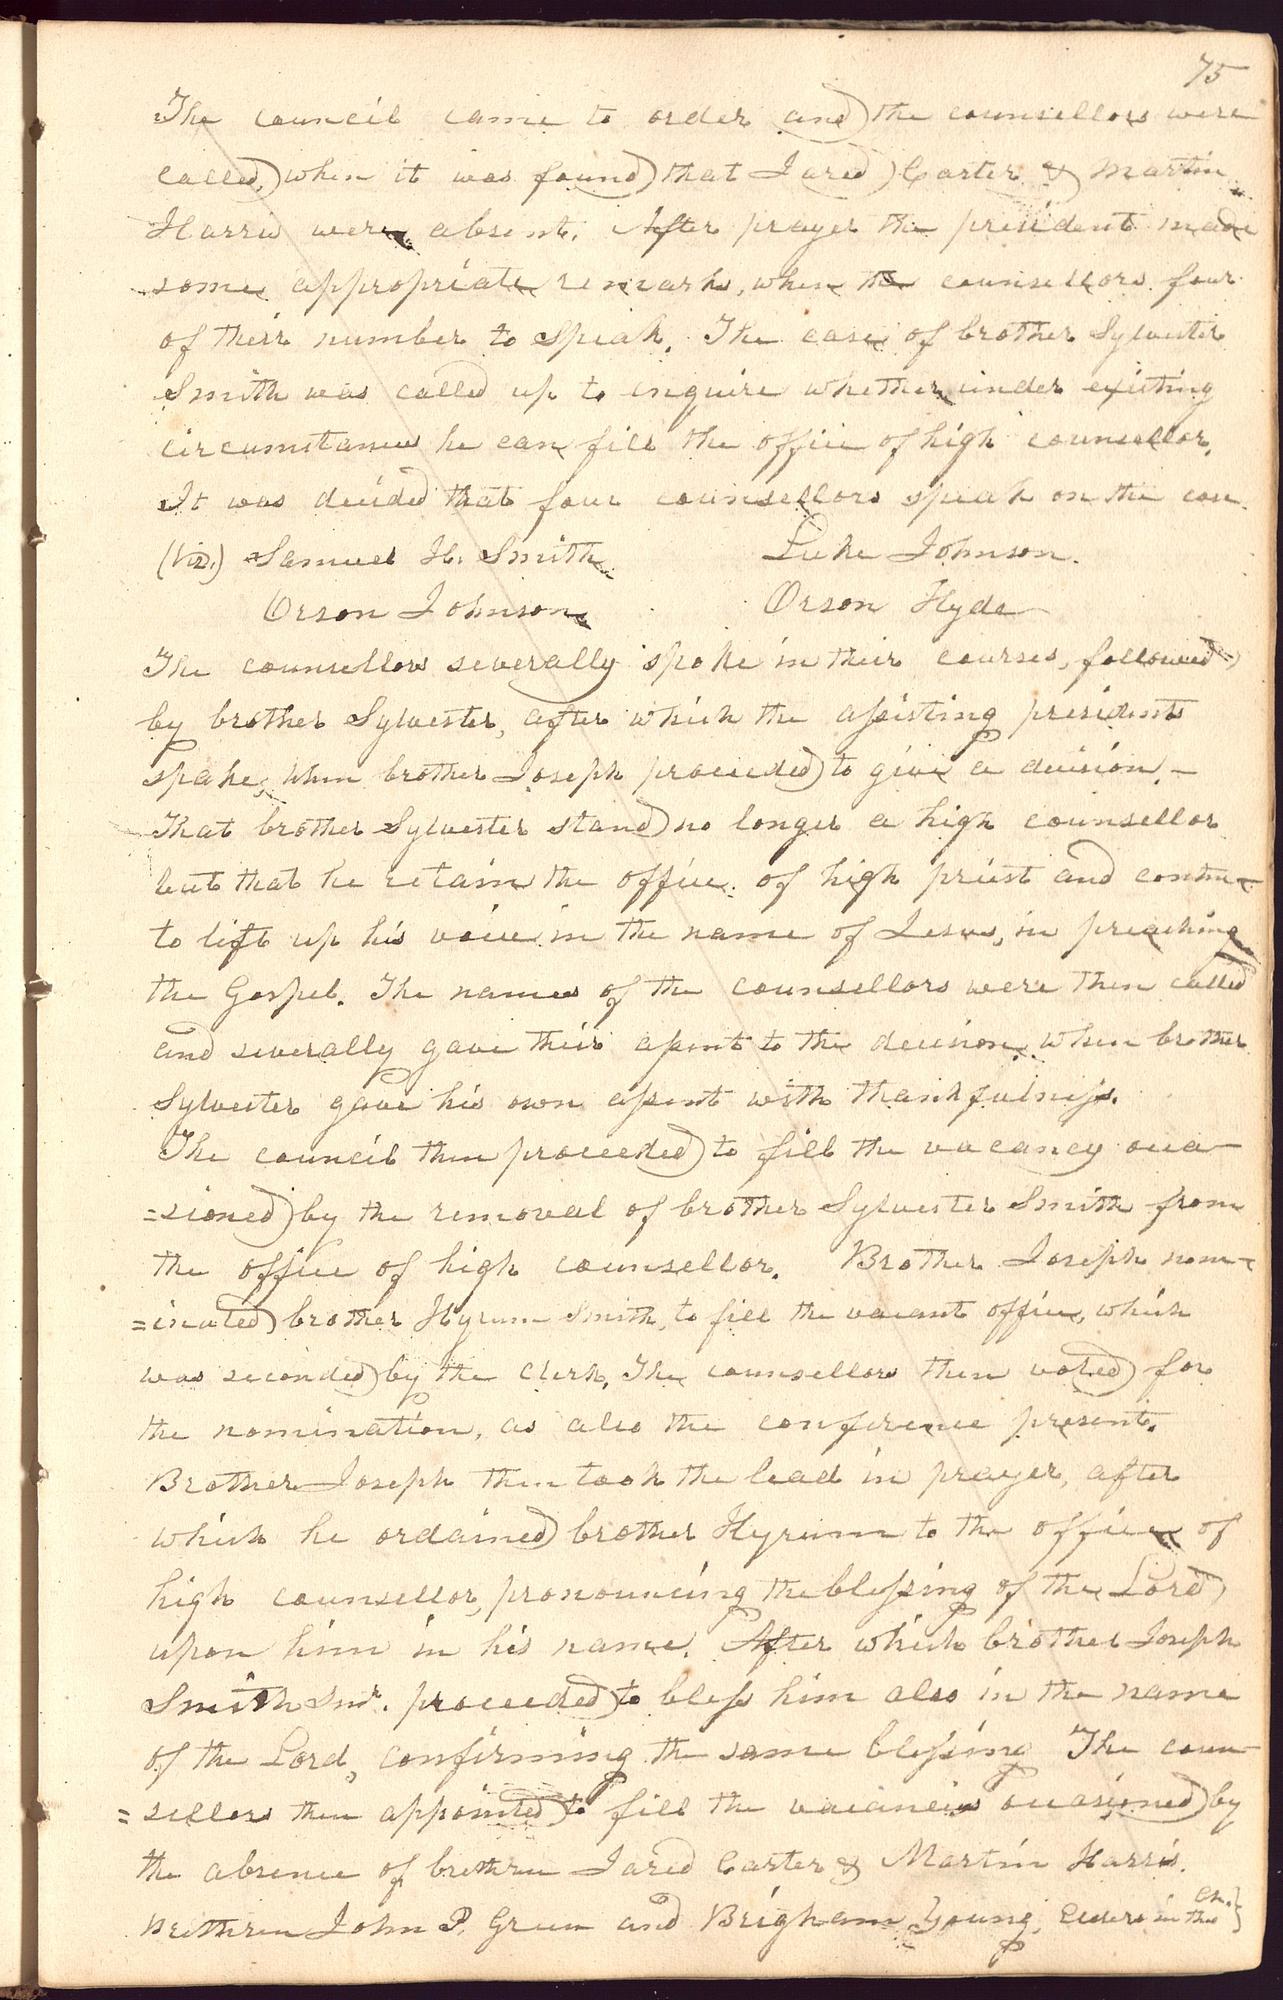 75
The council came to order and the counsellors were
called, when it was found that Jared Carter & Martin
Harris were absent. After prayer the president made
some appropriate remarks, when the counsellors four
of their number to speak. The case of brother Sylvester
Smith was called up to enquire whether under existing
circumstances he can fill the office of high counsellor.
It was decided that four counsellors speak on the
(viz.) Samuel H. Smith Luke Johnson.
Orson Johnson, Orson Hyde
The counsellors severally spoke in their courses, followed
by brother Sylvester, after which the assisting presidents
spake, when brother Joseph proceeded to give a decision.—
That brother Sylvester stand no longer a high counsellor
but that he retain the office of high priest and
to lift up his voice in the name of Jesus, in preaching
the Gospel. The names of the counsellors were then called
and severally gave their assent to the decision, when brother
Sylvester gave his own assent with thankfulness.
The council then proceeded to fill the vacancy occa-
=sioned by the removal of brother Sylvester Smith from
the office of high counsellor. Brother Joseph nom-
=inated brother Hyrum Smith, to fill the vacant office, which
was seconded by the Clerk. The counsellors then voted for
the nomination, as also the conference present.
Brother Joseph then took the lead in prayer, after
which he ordained brother Hyrum to the office of
high counsellor, pronouncing the blessing of the Lord
upon him in his name. After which brother Joseph
Smith Snr. proceeded to bless him also in the name
of the Lord, confirming the same blessing The coun-
=sellors then appointed to fill the vacancies occasioned by
the absence of brethren Jared Carter & Martin Harris.
Brethren John P. Green and Brigham Young, Elders in this ch.}